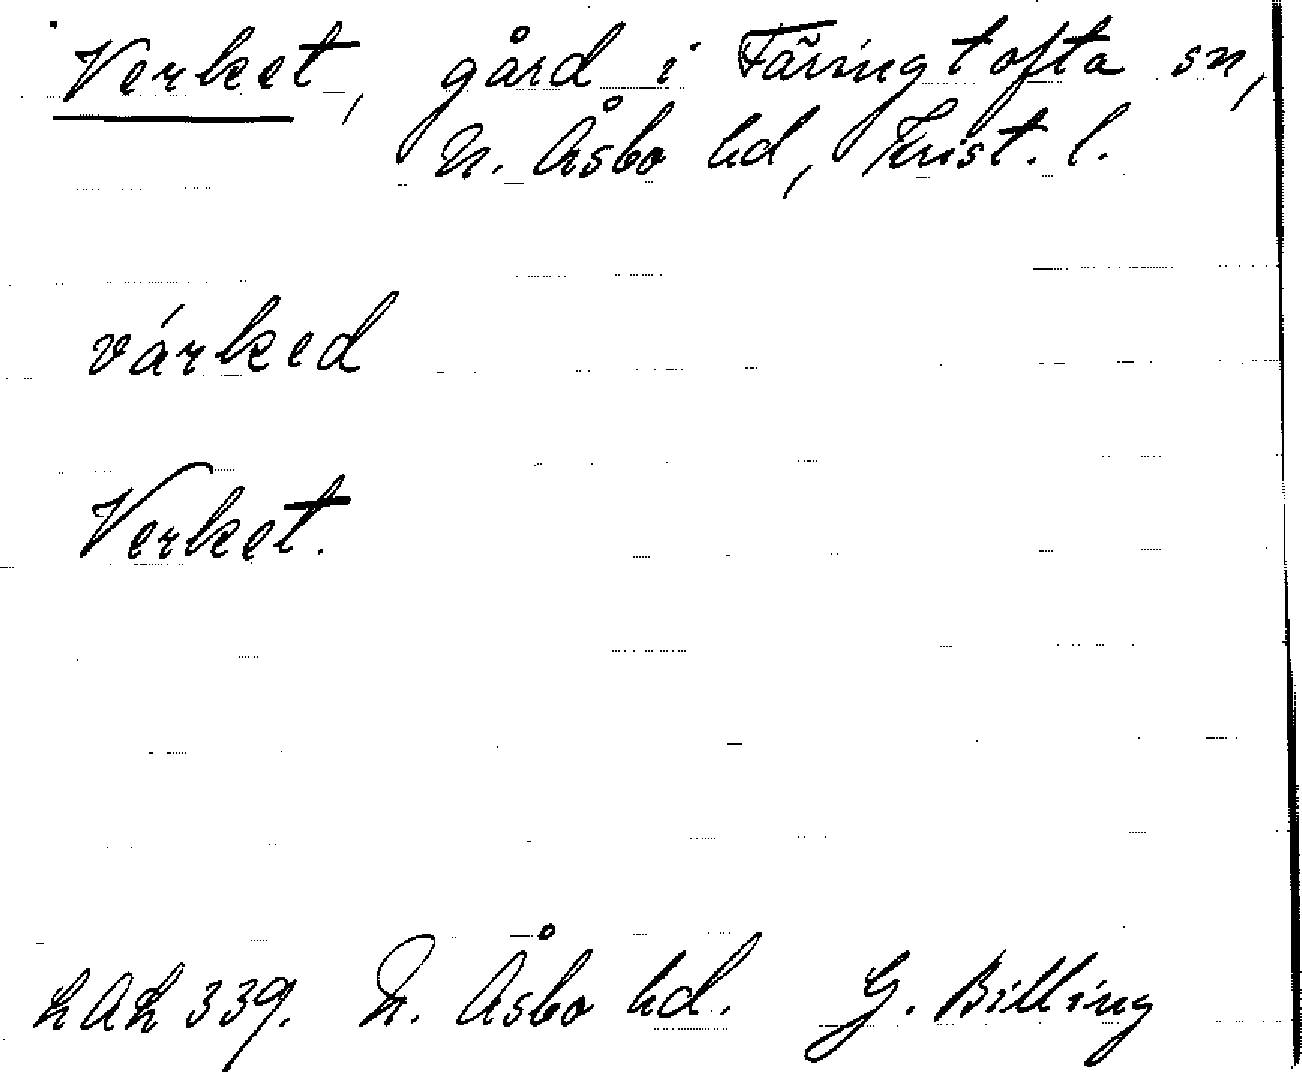 Verket, gård i Färingtofta sn,
N. Åsbo hd, Krist. l.
várked
Verket.
LAL 339. N. Åsbo hd. G. Billing